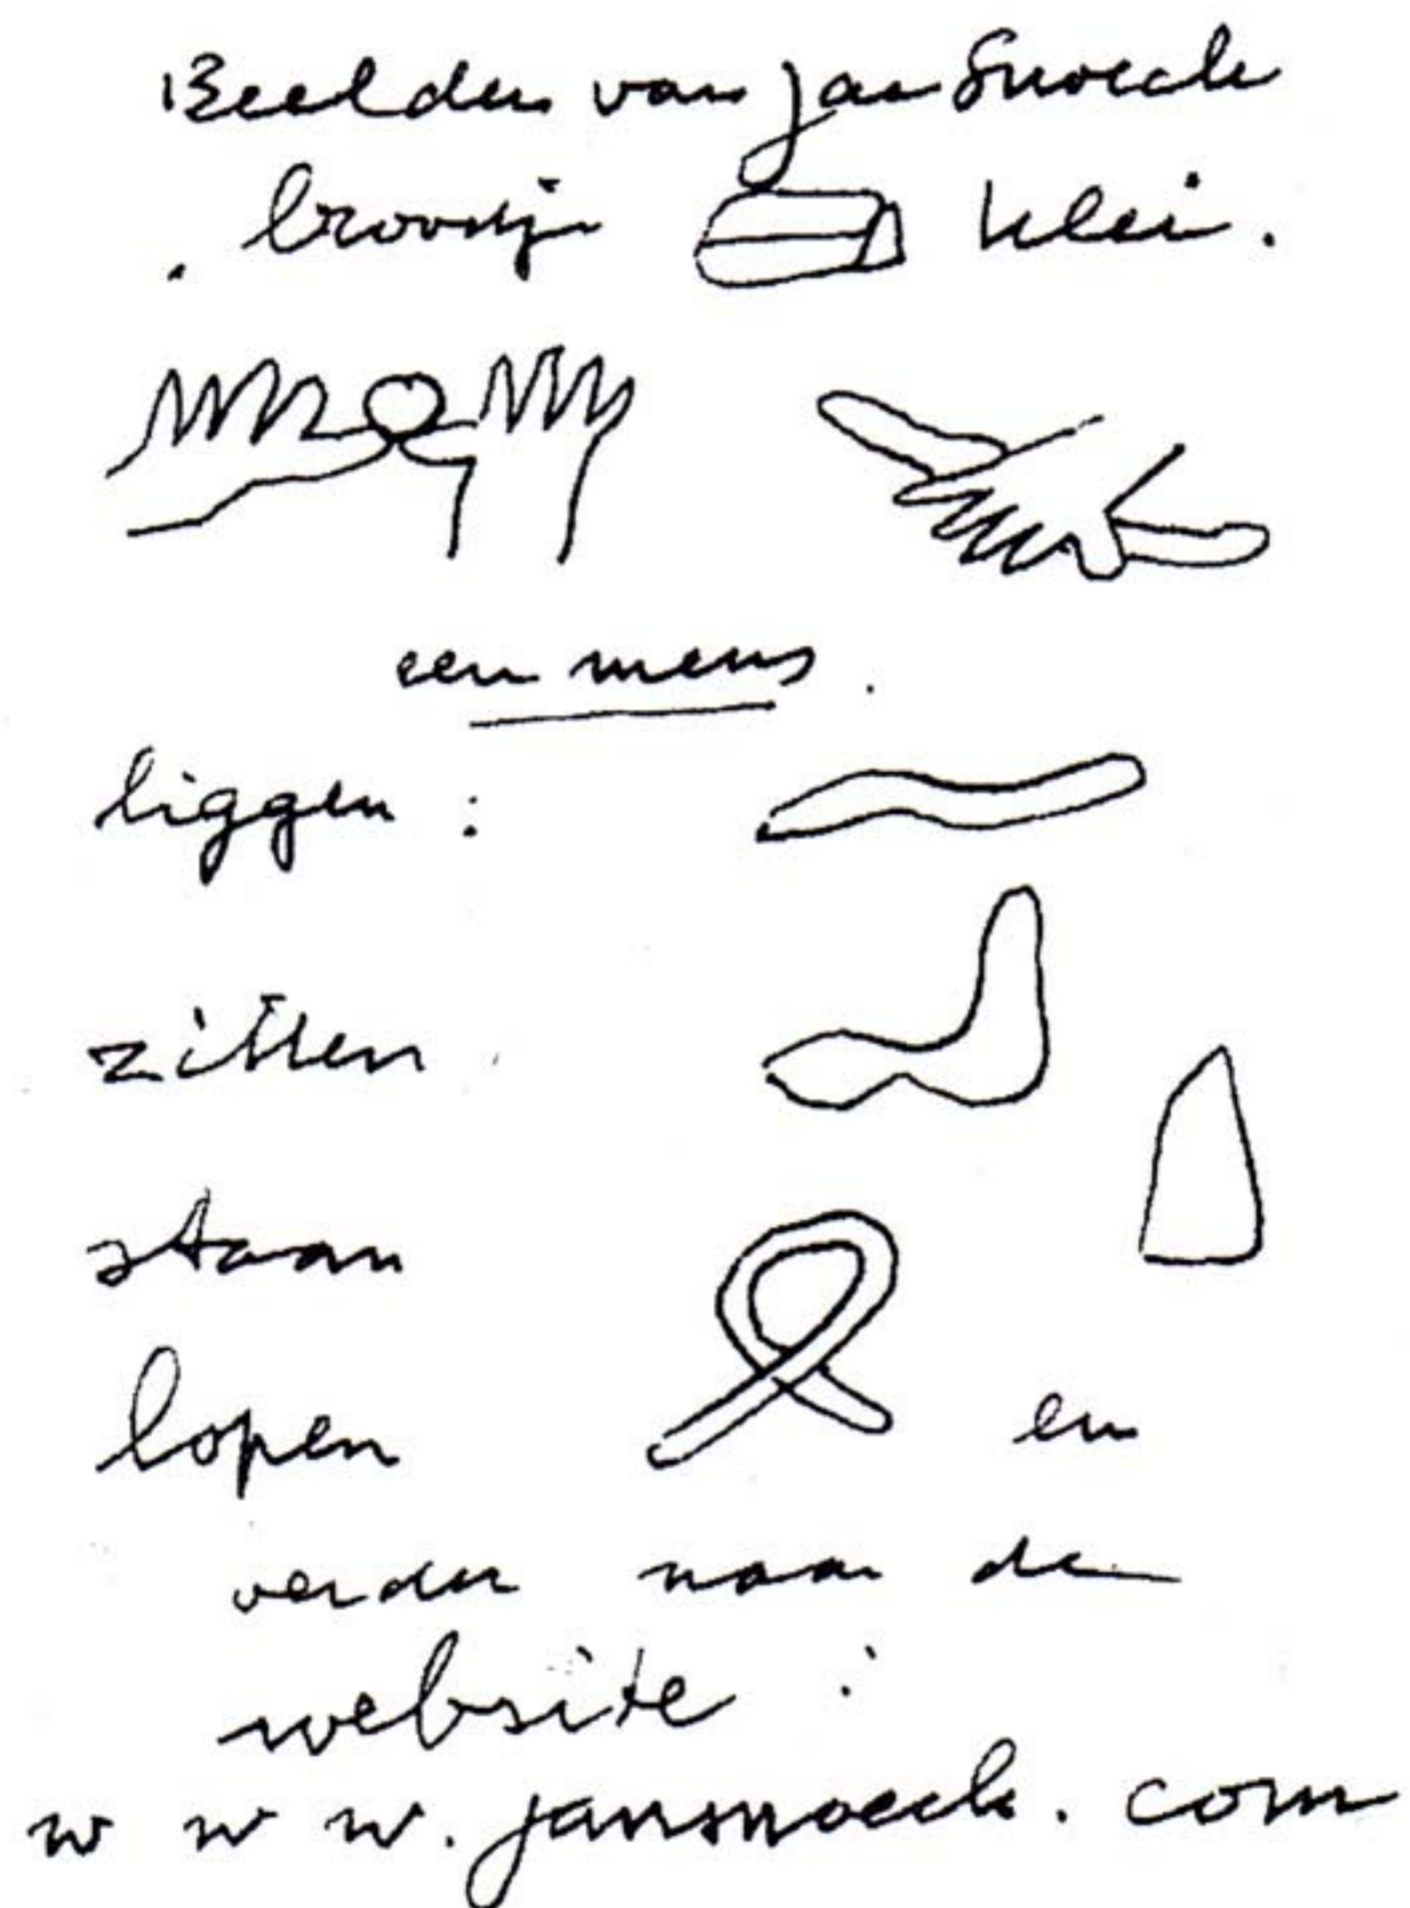 Beelden van Jan Snoeck
. broodje klei.
een mens.
liggen :
zitten
staan
lopen en
verder naar de
website :
w w w. jansnoeck. com